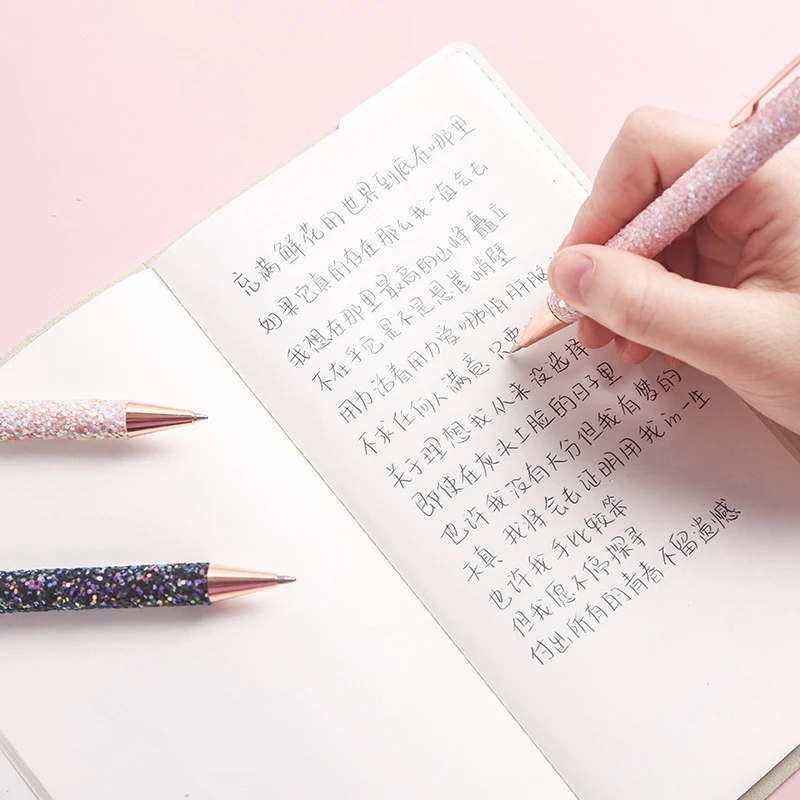 充满鲜花的世界到底在哪里
如果它真的存在那么我一直会去
我想在那里最高的山峰矗立
不在乎它是不是悬崖峭壁
用力活着用力爱哪怕肝脑
不求任何人满意只要
关于理想我从来没选择
即使在灰头土脸的日子里
也许我没有天分但我有梦的
天真 我将会去证明用我的一生
也许我手比较笨
但我愿不停探寻
付出所有的青春不留遗憾